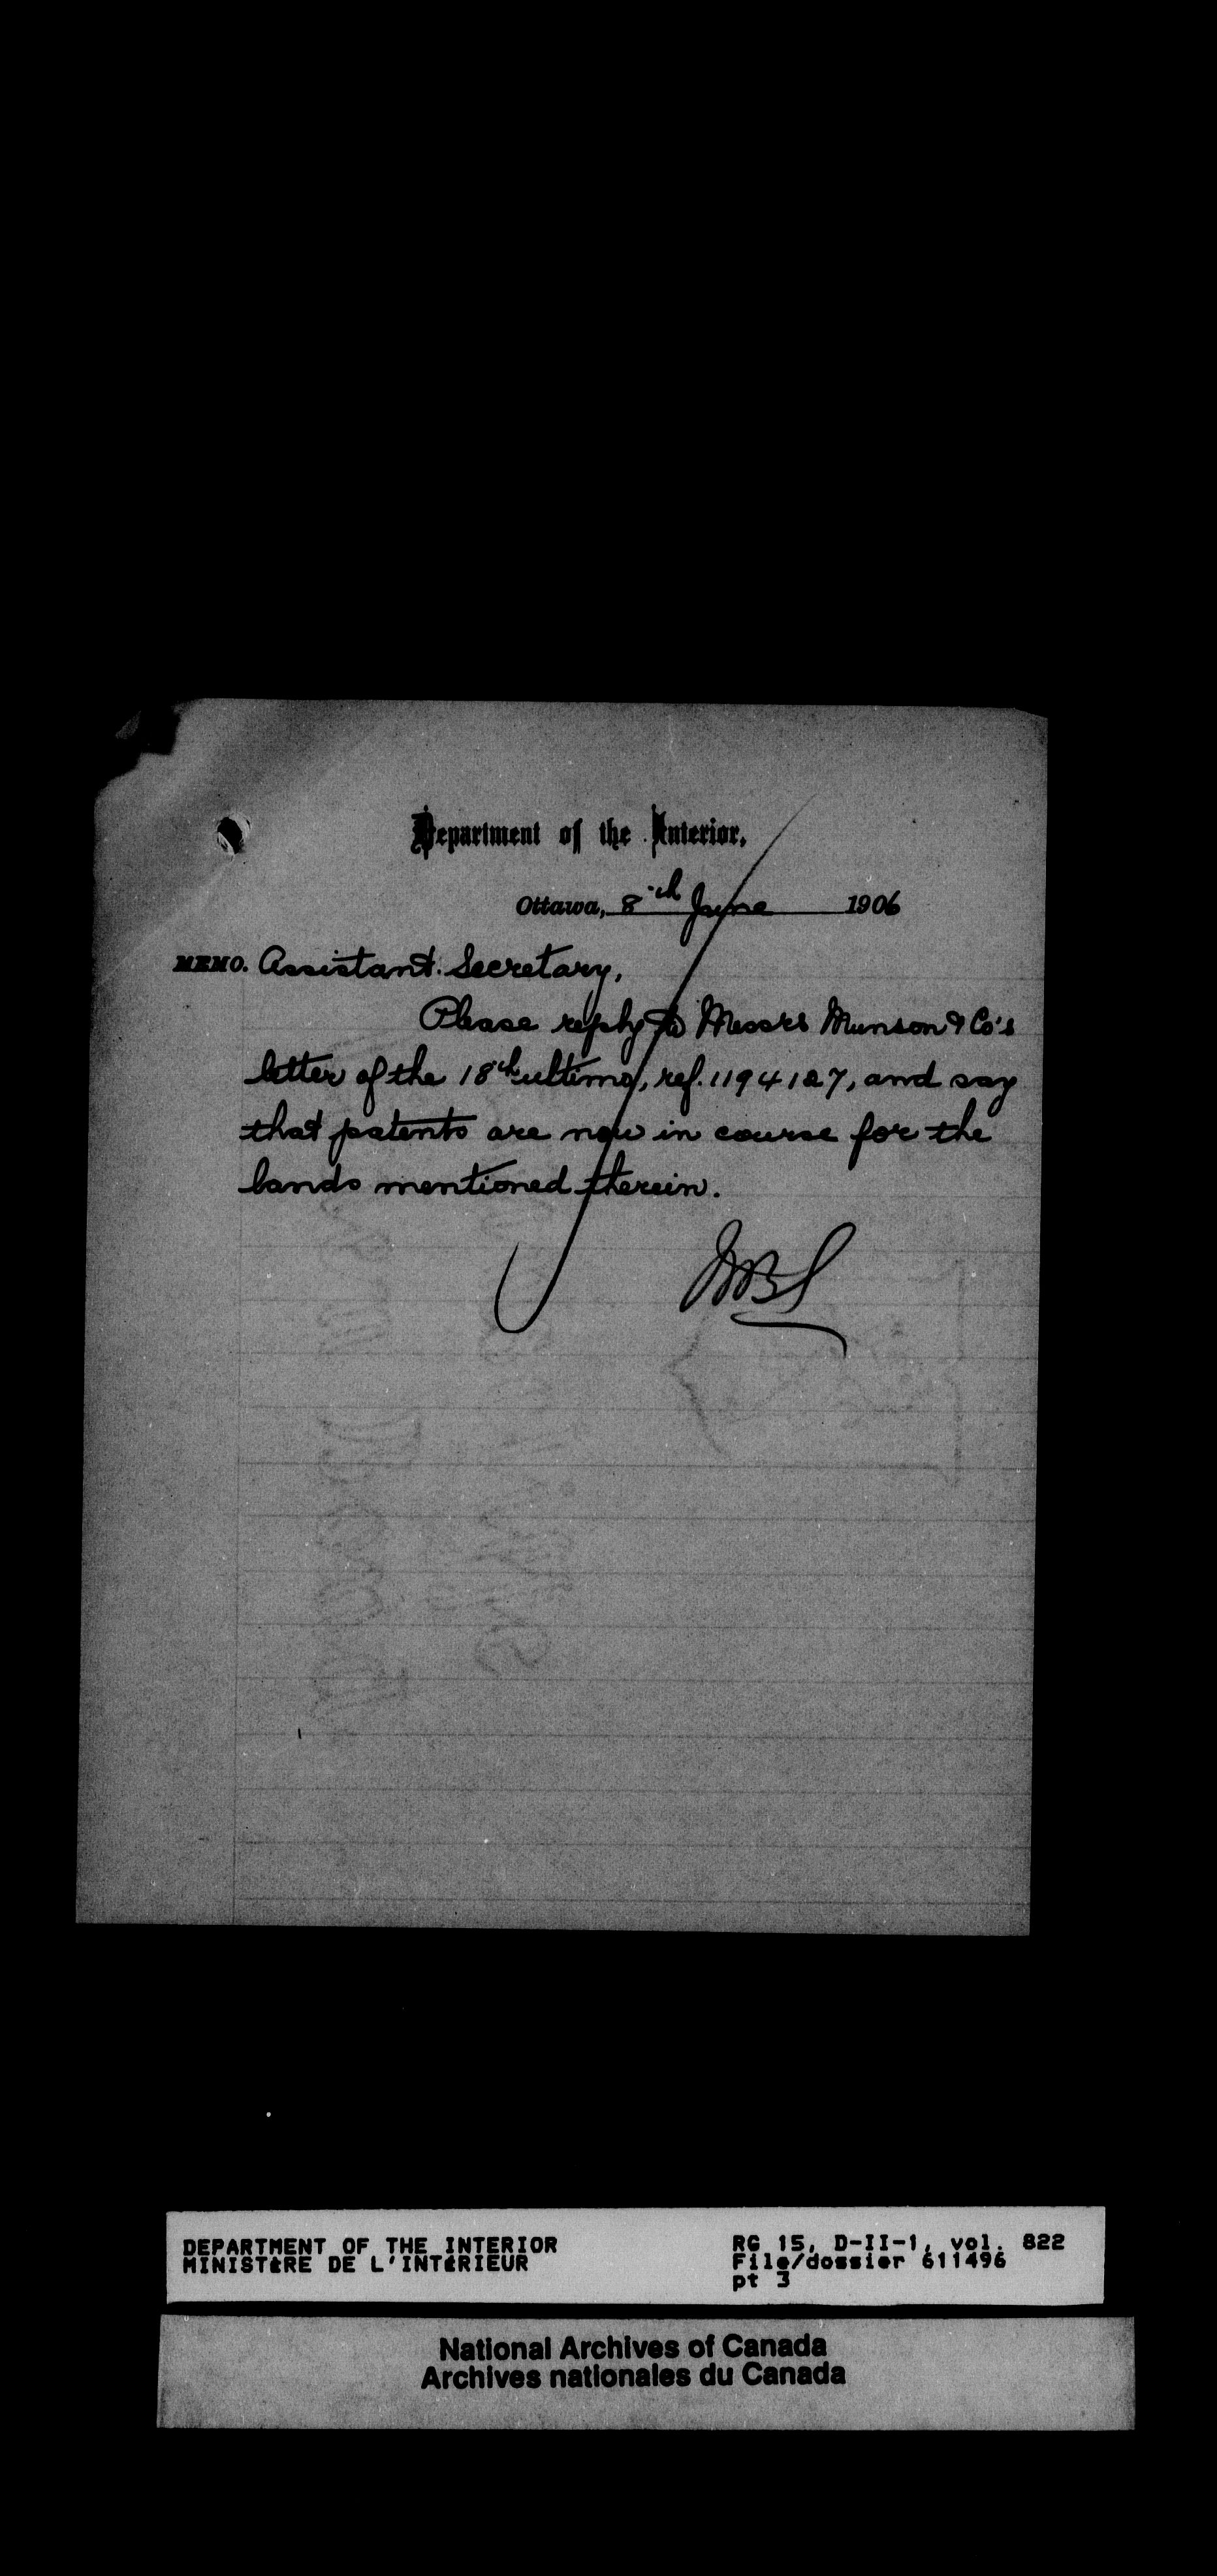 Department of the Interior,
Ottawa, 8th June 1906
MEMO. Assistant Secretary,
Please reply to Messrs Munson & Co's
letter of the 18th ultimo, ref. 1194127, and say
that patents are now in course for the
lands mentioned therein.
DEPARTMENT OF THE INTERIOR
MINISTÈRE DE L'INTÉRIEUR
RG 15, D-II-1, vol. 822
File/dossier 611496
pt 3
National Archives of Canada
Archives nationales du Canada